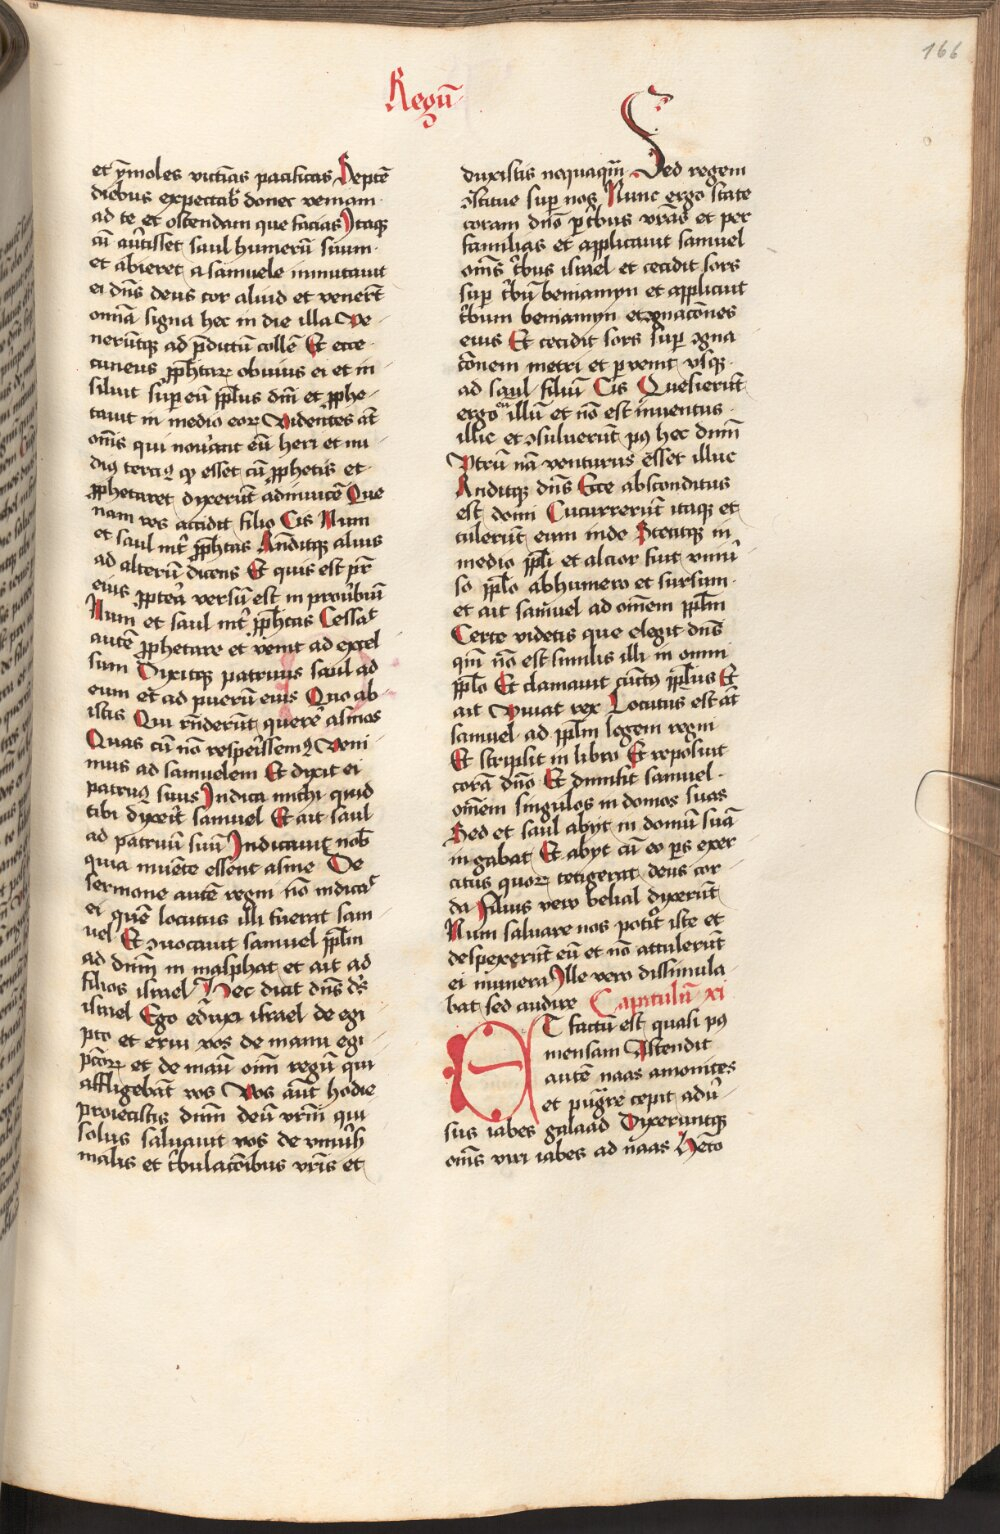 166
Regū
et ȳmoles victīas pacificas Septē
diebus expectab̄ donec veniam
ad te et ostendam que facias Itaqꝫ
cū av̄tisset saul humerū suum
et abieret a samuele inmutauit
ei dn̄s deus cor aliud et venerūt
omīa signa hec in die illa Ve
nerūtqꝫ ad p̄dictū collē Et ecce
cuneus ꝓph̄taꝝ obuius ei et in
siluit sup eū sp̄us dn̄i et ꝓphe
tauit in medio eoꝝ Videntes aūt
om̄s qui nouāt eū heri et nu
diꝰ terciꝰ ꝙ esset cū ꝓphetis et
ꝓphetaret dyxerūt adinuicē Que
nam res accidit filio Cis Num
et saul int̄ ꝓph̄tas Rn̄ditqꝫ alius
ad alterū dicens Et quis est pr̄
eius ꝓpterea versū est in prou̇biū
Num et saul int̄ ꝓph̄tas Cessaᵗ
autē ꝓphetare et venit ad excel
sum Dixitqꝫ patruus saul ad
eum et ad puerū eius Quo ab
istis Qui rn̄derūt querē asinas
Quas cū nō repeīssemꝰ Veni
mus ad samuelem Et dyxit ei
patruꝰ suus Indica michi quid
tibi dyxeīt samuel Et ait saul
ad patruū suū Indicauit nob̄
quia inuēte essent asine De
sermone autē regni nō indicaᵗ
ei quē locutus illi fuerat sam
uel Et ꝯuocauit samuel ppl̄m
ad dn̄m in masphat et ait ad
filios israel Hec dicit dn̄s dꝰs
israel Ego eduxi israel de egi
pto et erui vos de manu egi
pc̄oꝝ et de maū om̄i regū qui
affligebāt vos Vos aūt hodie
proiecistis dn̄m deū vrm̄ qui
solus saluauit vos de vniūs̄
malis et t̄bulac̄oibus vr̄is et
duxistis nequaqūm Sed regem
ꝯstitue sup nos Nunc ergo state
coram dn̄o p t̄bus vr̄as et per
familias et applicauit samuel
om̄s t̄bus israel et cecidit sors
sup t̄bū beniamyn et applicuit
t̄bum beniamyn et ꝯgnac̄ones
eius Et cecidit sors sup ꝯgna
c̄onem metri et puenit vsqꝫ
ad saul filiū Cis Quesierūt
ergo eū illū et nō est inuentus
illic et ꝯsuluerūt pꝰ hec dn̄m
Vtrū nā venturus esset illuc
Rn̄ditqꝫ dn̄s Ecce absconditus
est domi Cucurrerūt itaqꝫ et
tulerūt eum inde Stetitqꝫ in
medio ppl̄i et alcior fuit vniu̇
so ppl̄o abhumero et sursum
et ait samuel ad om̄em ppl̄m
Certe videtis que elegit dn̄s
qm̄ nō est similis illi in omni
ppl̄o Et clamauit cūctꝰ ppl̄us Et
ait Viuat rex Locutus est aūt
samuel ad ppl̄m legem regni
Et scripsit in libro Et reposuit
corā dn̄o Et dimisit samuel
om̄em singulos in domos suas
Sed et saul abyt in domū suā
in gabat Et abyt cū eo ps exer
citus quoꝝ tetigerat deus cor
da Filius vero belial dyxerūt
Num saluare nos potiᵗ iste et
despexerūt eū et nō attulerūt
ei munera Ille vero dissimula
bat sed audire Capitulū xi
ET factū est quasi pꝰ
mensam Astendit
autē naas amonites
et pūgre cepit adu̇
sus iabes galaad Dyxeruntqꝫ
om̄s viri iabes ad naas Hēto